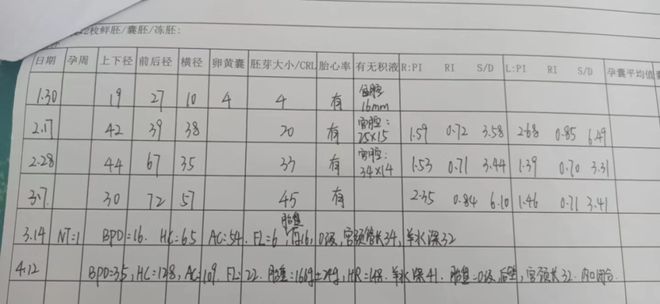 2枚鲜胚/囊胚/冻胚:
日期 孕周 上下径 前后径 横径 卵黄囊 胚芽大小/CRL 胎心率 有无积液 R:PI RI S/D L:PI RI S/D 孕囊平均值
1.30 19 27 10 4 4 有 宫腔 16mm
2.17 42 39 38 20 有 宫腔: 25×15 1.59 0.72 3.58 2.68 0.85 6.49
2.28 44 67 35 33 有 宫腔: 34×14 1.53 0.71 3.44 1.39 0.70 3.31
3.7 30 72 57 45 有 2.35 0.84 6.10 1.46 0.71 3.41
3.14 NT=1 BPD=16. HC=65 AC=54. FL=6, 胎盘后16, 0级, 宫颈管长34, 羊水深32
4.12 BPD=35, HC=128, AC=109. FL=22. 胎重=166g±24g, HR=148. 羊水深41. 胎盘=0级后壁, 宫颈长32. 内口闭合.